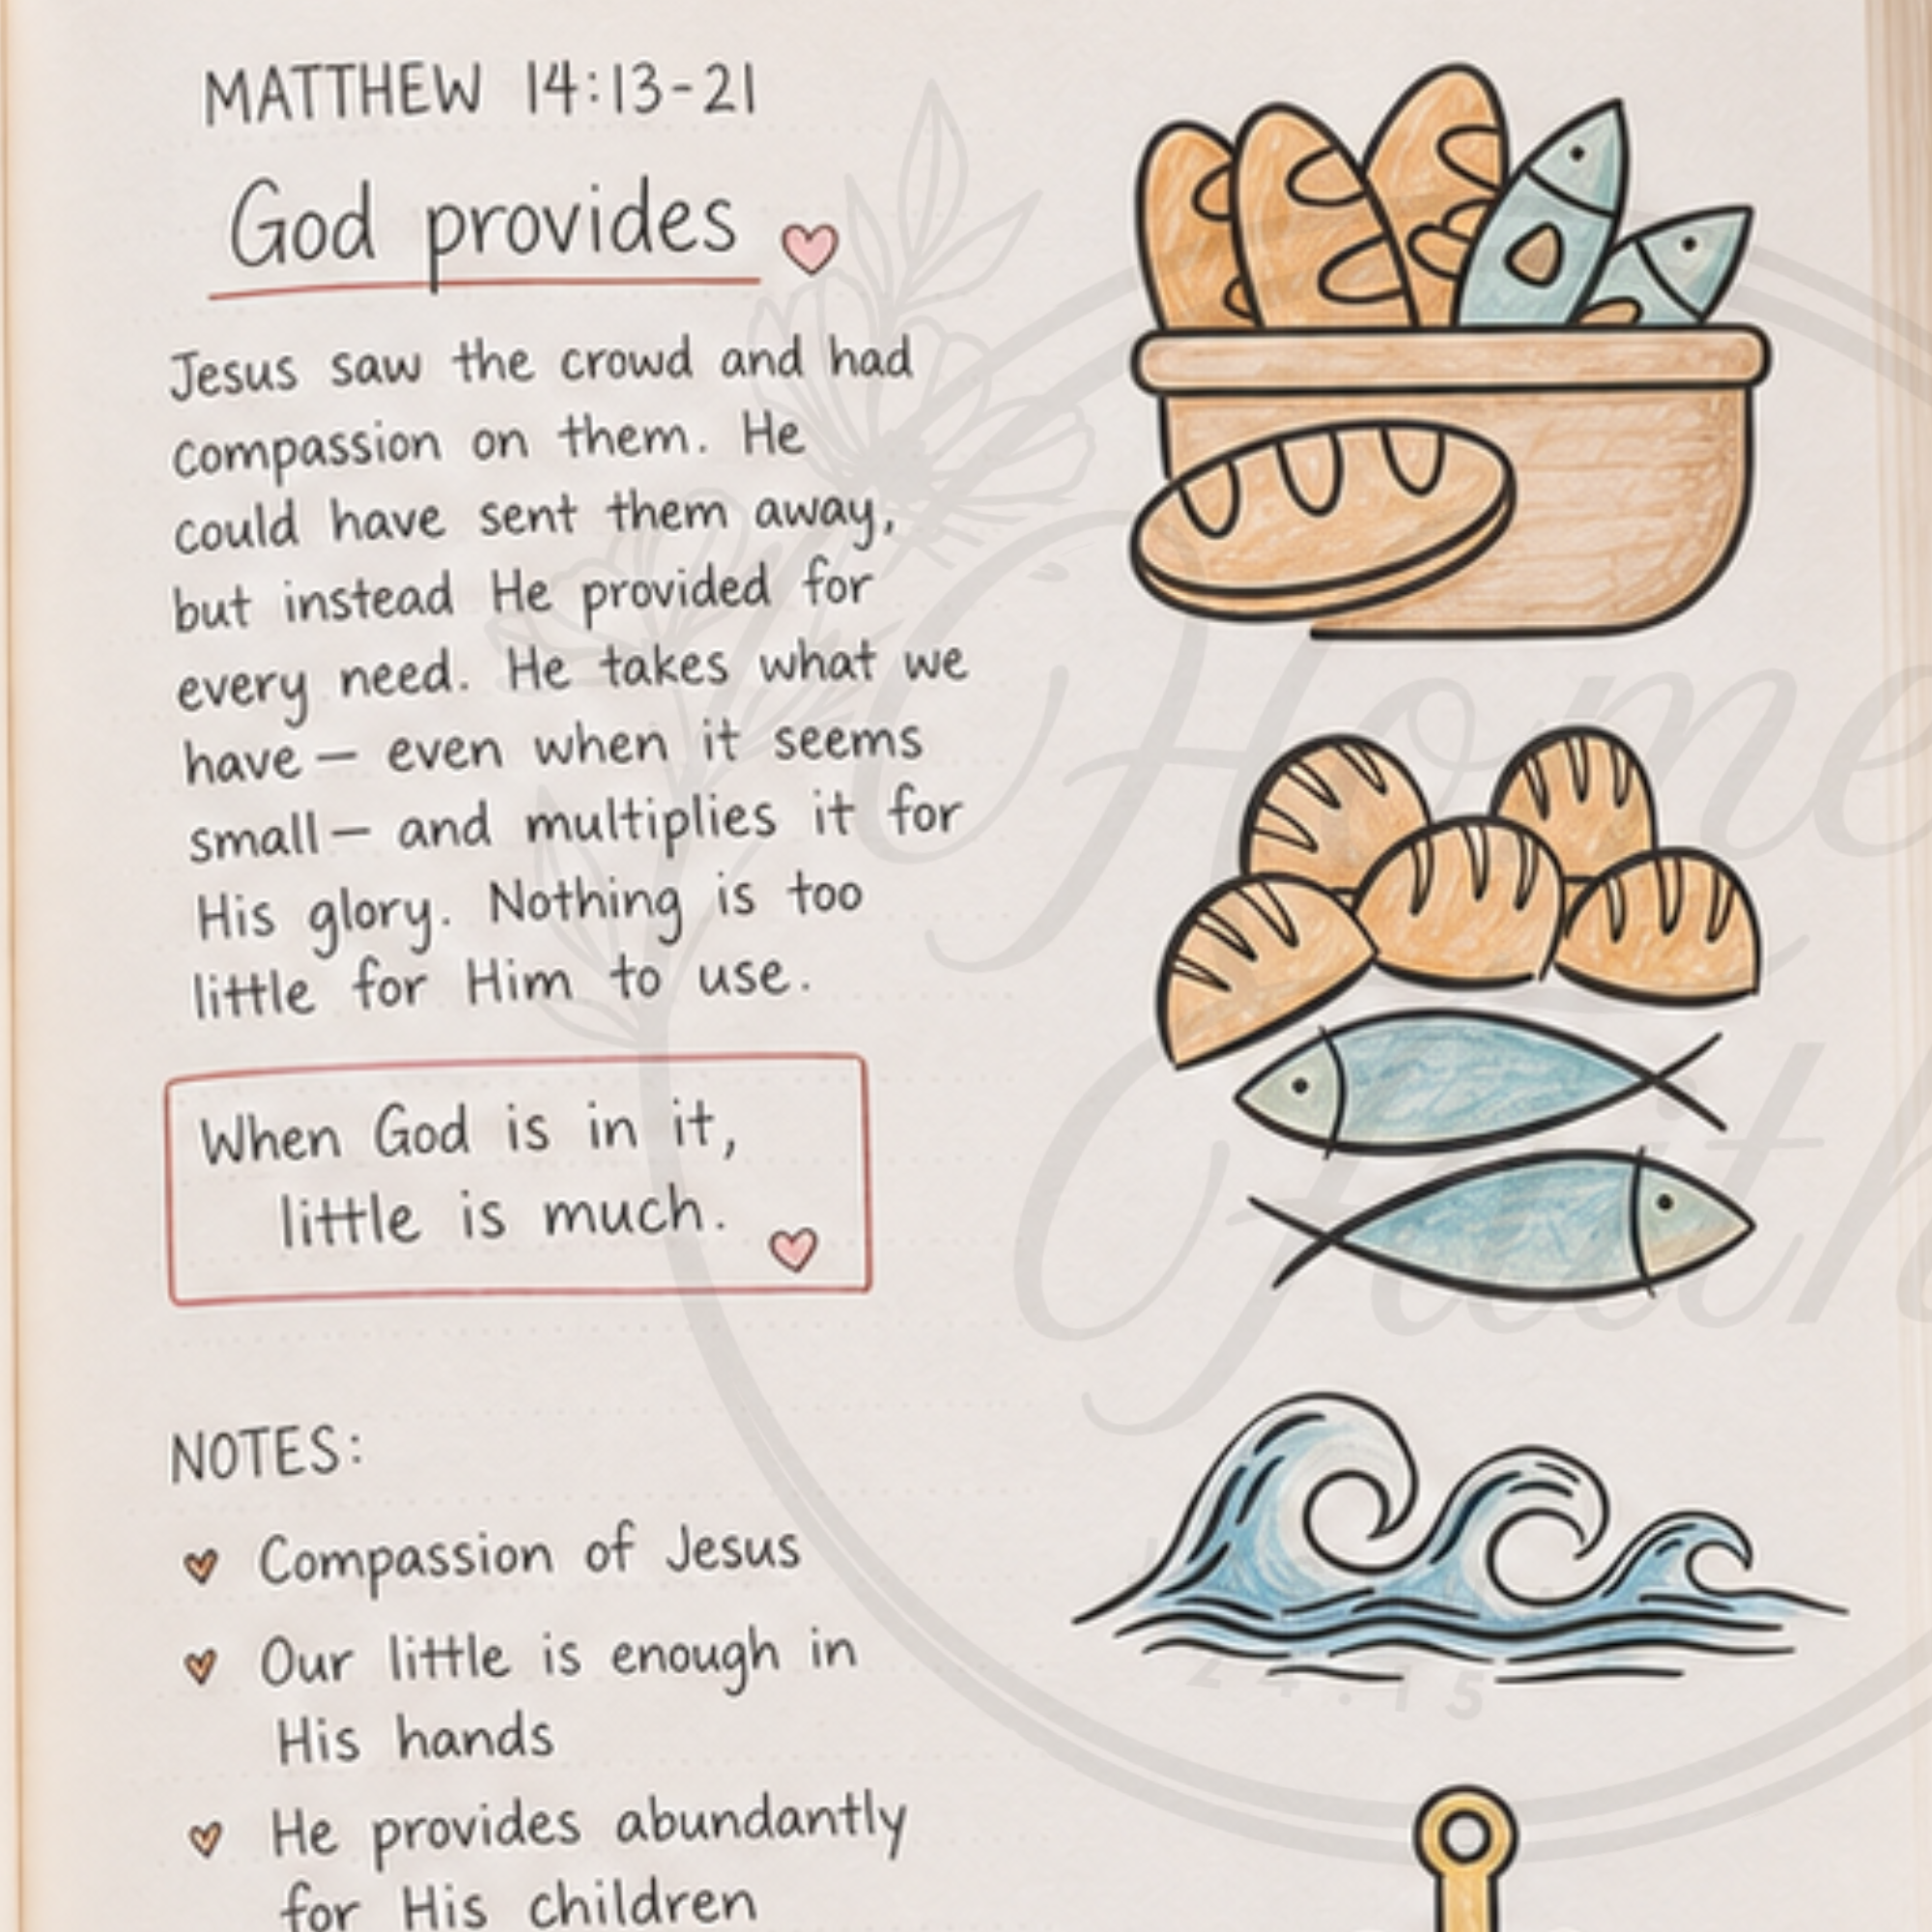 MATTHEW 14:13-21
God provides
Jesus saw the crowd and had
compassion on them. He
could have sent them away,
but instead He provided for
every need. He takes what we
have — even when it seems
small — and multiplies it for
His glory. Nothing is too
little for Him to use.
When God is in it,
little is much.
NOTES:
Compassion of Jesus
Our little is enough in
His hands
He provides abundantly
for His children
Home
Faith
24:15